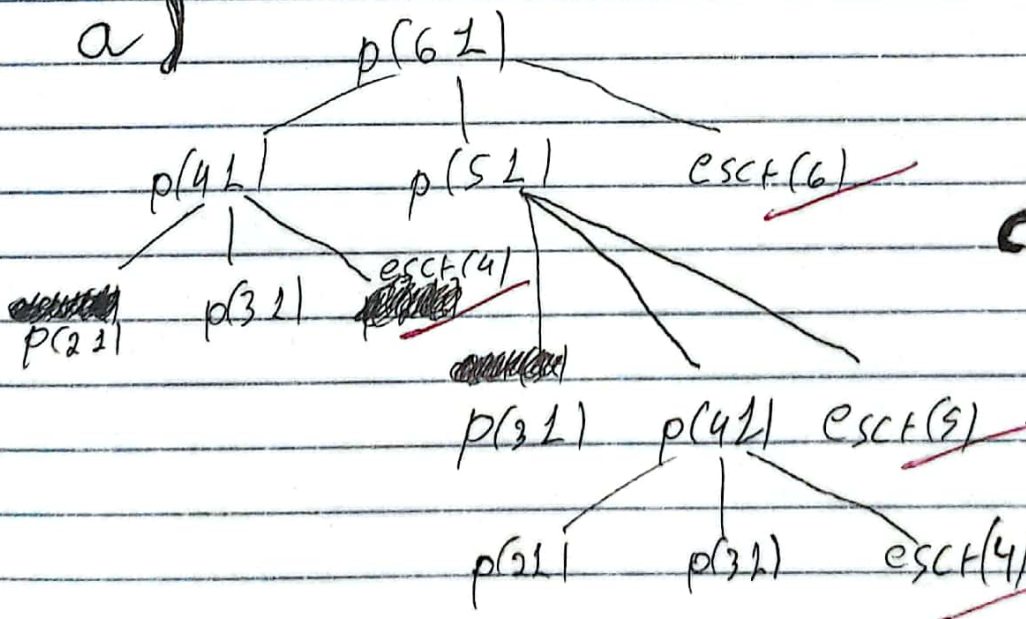 a)
p(6 1)
p(4 1) p(5 1) escr(6)
p(2 1) p(3 1) escr(4)
p(3 1) p(4 1) escr(5)
p(2 1) p(3 1) escr(4)